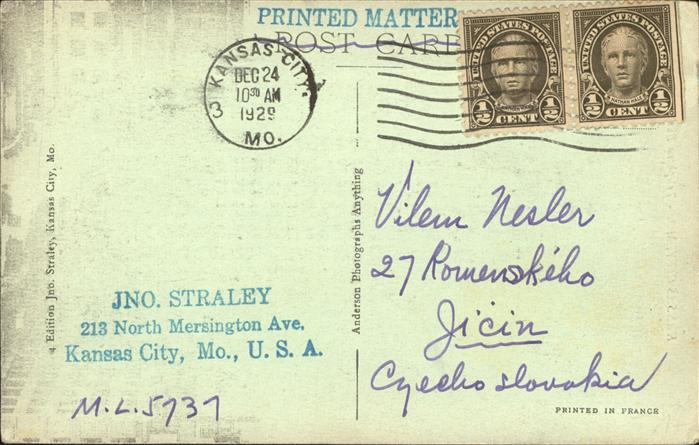 PRINTED MATTER
POST CARD
KANSAS CITY,
DEC 24
10 30 AM
1929
3
MO.
UNITED STATES POSTAGE
NATHAN HALE
1/2 CENT 1/2
UNITED STATES POSTAGE
NATHAN HALE
1/2 CENT 1/2
4 Edition Jno. Straley, Kansas City, Mo.
Anderson Photographs Anything
Vilem Nesler
27 Romenského
Jicin
Czecho slovakia
JNO. STRALEY
213 North Mersington Ave.
Kansas City, Mo., U. S. A.
M.L.5737
PRINTED IN FRANCE